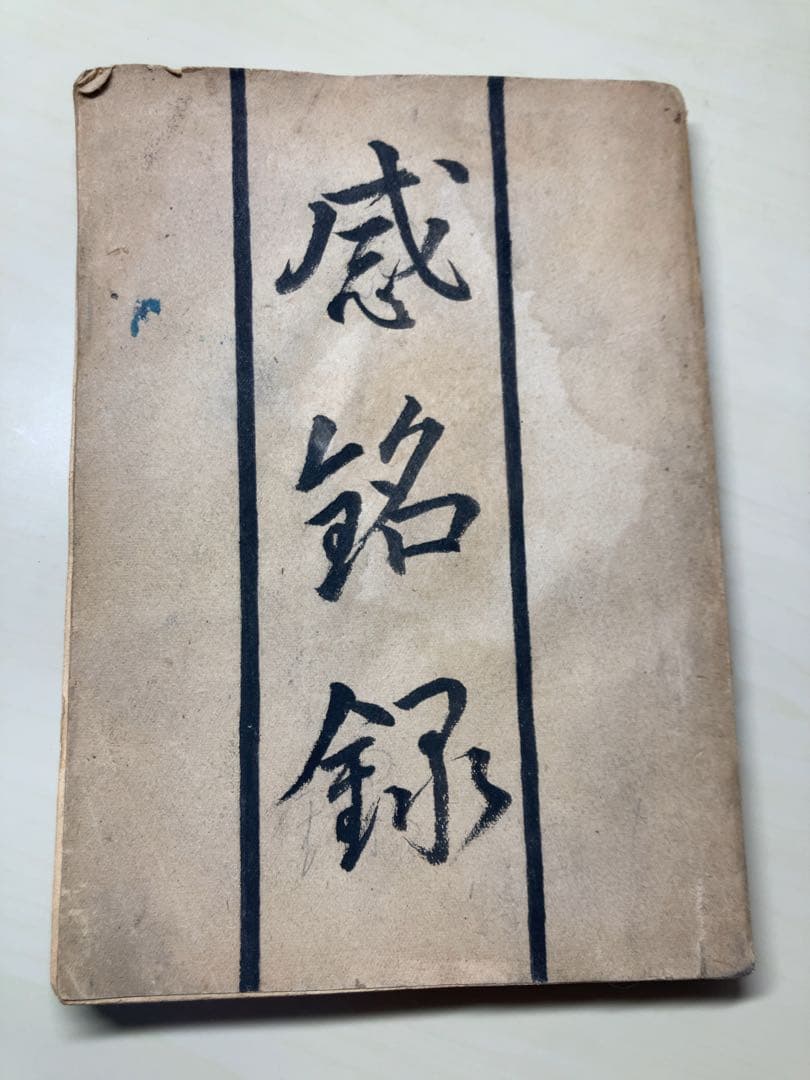 感銘録